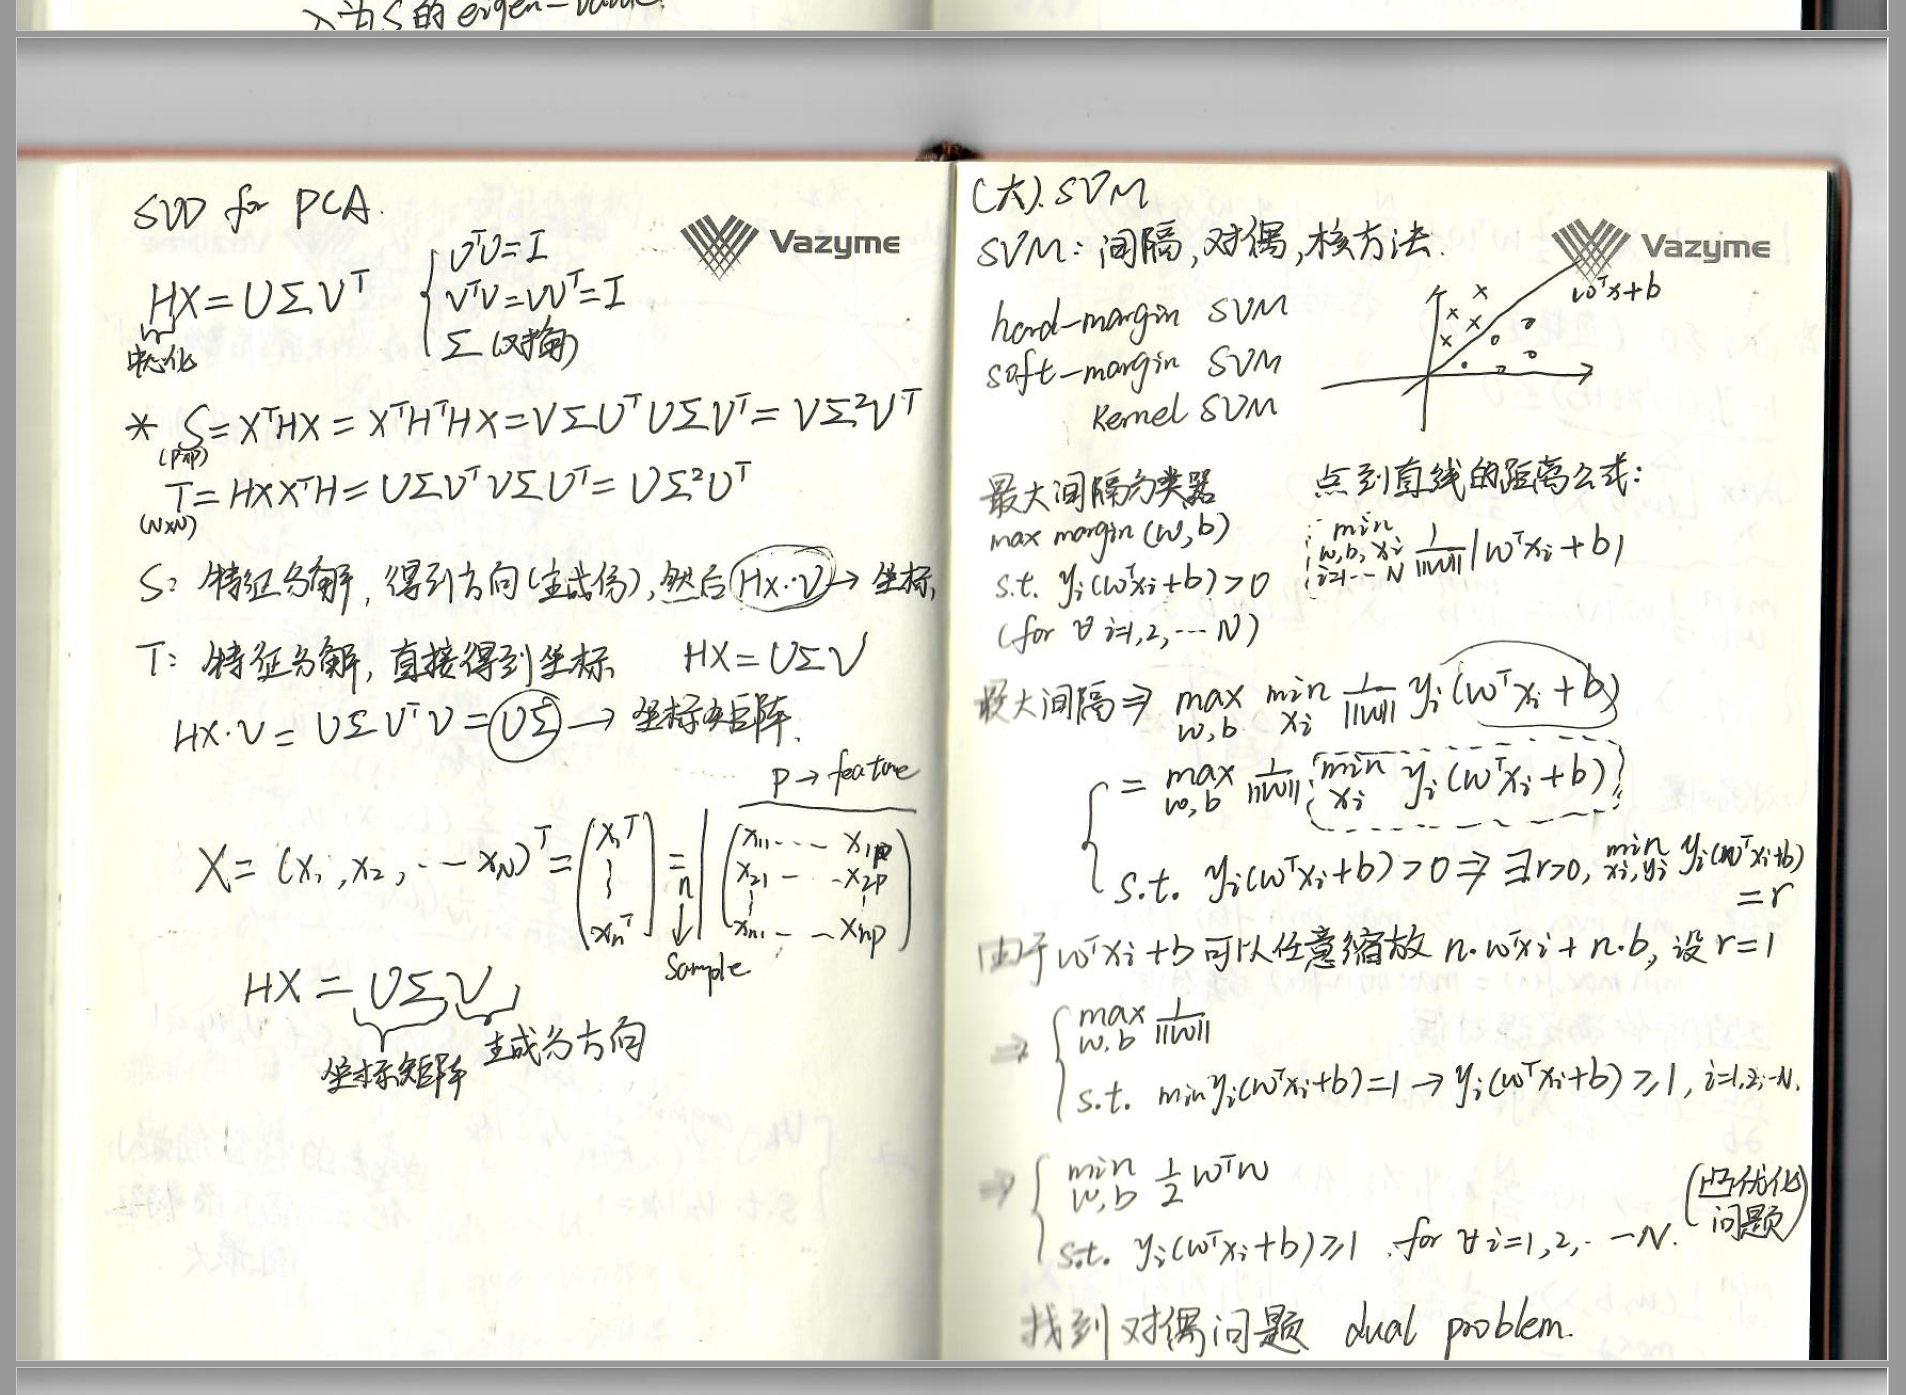 λ为S的 eigen-value.
SVD for PCA.
Vazyme
HX = UΣV^T
中心化
{ U^TU = I
V^TV = VV^T = I
Σ (对角)
* S = X^THX = X^TH^THX = VΣU^TUΣV^T = VΣ²V^T
(p×p)
T = HXX^TH = UΣV^TVΣU^T = UΣ²U^T
(N×N)
S: 特征分解, 得到方向(主成份), 然后 HX·V → 坐标
T: 特征分解, 直接得到坐标 HX = UΣV
HX·V = UΣV^TV = UΣ → 坐标矩阵.
p → feature
X = (x₁, x₂, ... x_N)^T = ( x₁^T ⋮ x_n^T ) = n ↓ sample ( x₁₁ ... x₁p
x₂₁ ... x₂p
⋮
x_n₁ ... x_np )
HX = UΣV
坐标矩阵 主成分方向
(六). SVM
Vazyme
SVM: 间隔, 对偶, 核方法.
w^Tx+b
hard-margin SVM
soft-margin SVM
Kernel SVM
最大间隔分类器
max margin (w, b)
s.t. y_i(w^Tx_i+b) > 0
(for ∀ i=1,2,...N)
点到直线的距离公式:
min w,b,x_i i=1...N 1/||w|| |w^Tx_i+b|
最大间隔 ⇒ max w,b min x_i 1/||w|| y_i(w^Tx_i+b)
{ = max w,b 1/||w|| min x_i y_i(w^Tx_i+b)
s.t. y_i(w^Tx_i+b) > 0 ⇒ ∃r>0, min x_i,y_i y_i(w^Tx_i+b)
= r
由于 w^Tx_i+b 可以任意缩放 n·w^Tx_i+n·b, 设 r=1
⇒ { max w,b 1/||w||
s.t. min y_i(w^Tx_i+b)=1 → y_i(w^Tx_i+b) ≥ 1, i=1,2,..N.
⇒ { min w,b 1/2 w^Tw
s.t. y_i(w^Tx_i+b) ≥ 1 for ∀ i=1,2,...N.
(凸优化
问题)
找到对偶问题 dual problem.